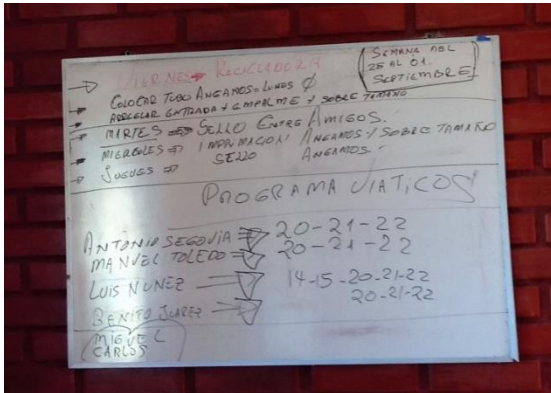 VIERNES → RECICLADORA
(SEMANA DEL
25 AL 01.
SEPTIEMBRE)
COLOCAR TUBO ANGAMOS = LUNES Ø
ARREGLAR ENTRADA Y EMPALME Y SOBRE TAMAÑO
MARTES ⇒ SELLO ENTRE AMIGOS.
MIERCOLES ⇒ IMPRIMACION ANGAMOS Y SOBRE TAMAÑO
SELLO ANGAMOS.
JUEUES ⇒
PROGRAMA VIATICOS
ANTONIO SEGOVIA 20-21-22
MANUEL TOLEDO 20-21-22
LUIS NUNEZ 14-15-20-21-22
BENITO JUAREZ 20-21-22
MIGUEL
CARLOS